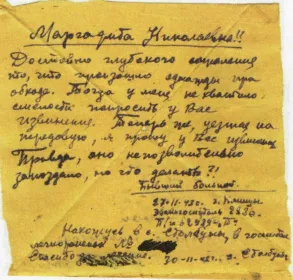 Маргарита Николаевна!!
Достойно глубокого сожаления
то, что произошло однажды при
обходе. Тогда у меня не хватило
смелости попросить у Вас
извинения. Теперь же, уезжая на
передовую, я прошу у Вас извинения
Правда, оно непозволительно
запоздало, но что делать?!
Бывший больной
27-11-42г. г.
Эвакогоспиталь 2630.
Нахожусь в с. в госпит
№
Спасибо за 30-11-42г. с.